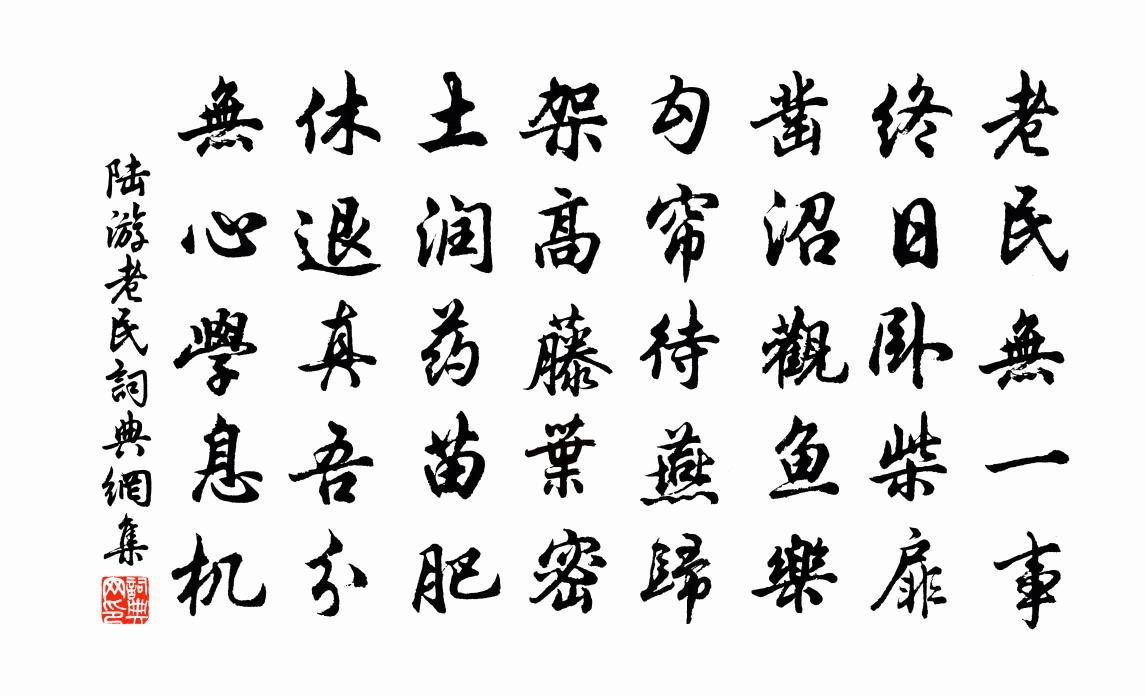 老民無一事
終日卧柴扉
凿沼觀鱼樂
勾帘待燕歸
架高藤葉密
土润药苗肥
休退真吾分
無心學息机
陆游老民詞典網集
詞典網印